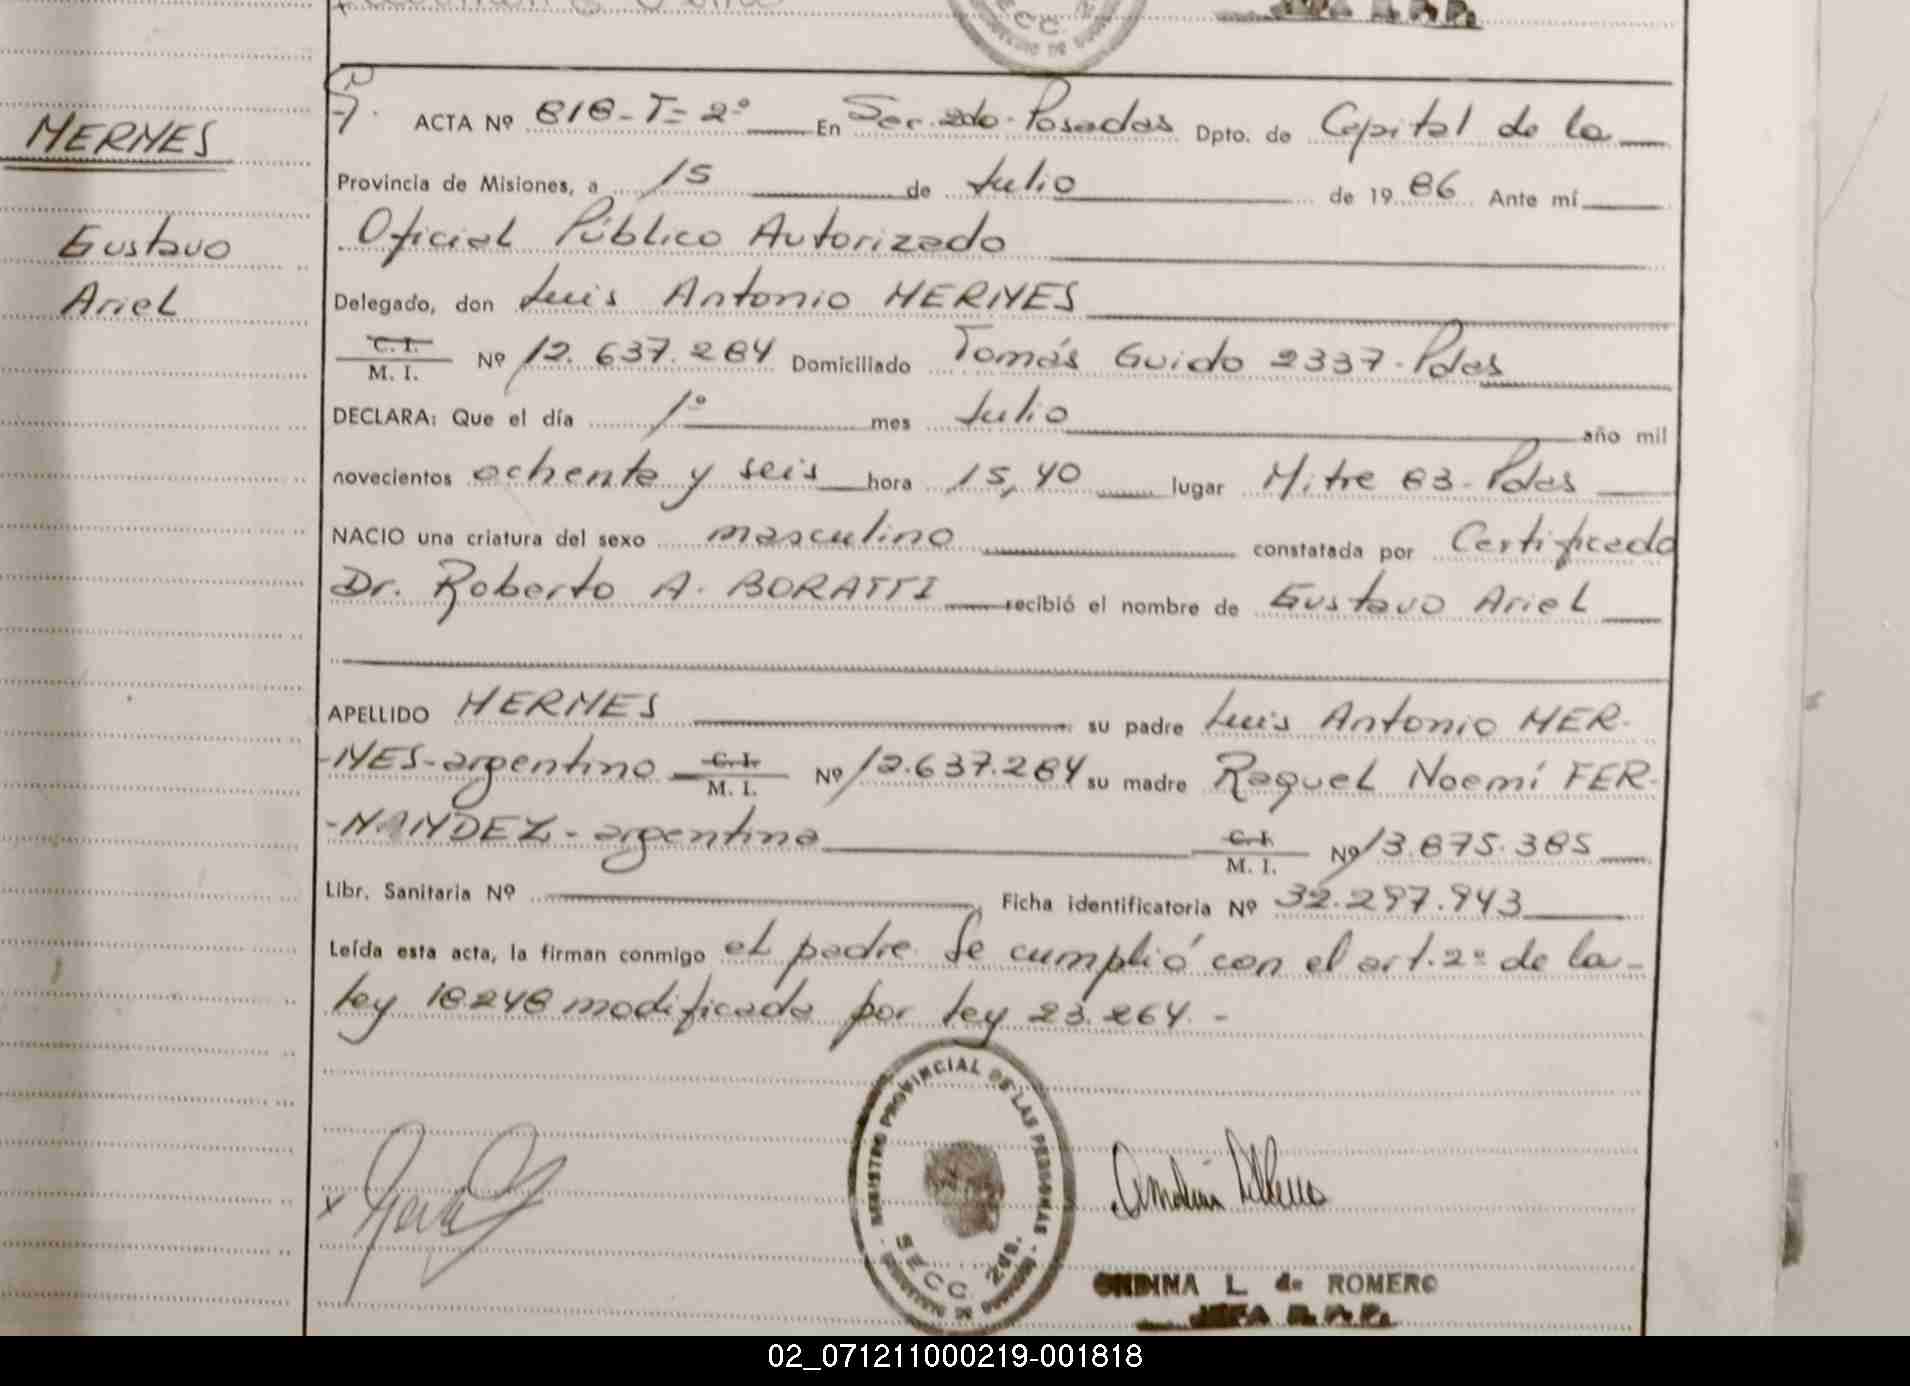 HERMES
Gustavo
Ariel
ACTA Nº 818-T=2º En Sec. 2do. Posadas Dpto. de Capital de la
Provincia de Misiones, a 15 de Julio de 1986 Ante mí
Oficial Público Autorizado
Delegado, don Luis Antonio HERMES
C. I.
M. I. Nº 12.637.284 Domiciliado Tomás Guido 2337-Pdas
DECLARA: Que el día 1º mes Julio año mil
novecientos ochenta y seis hora 15,40 lugar Mitre 83-Pdas
NACIO una criatura del sexo masculino constatada por Certificado
Dr. Roberto A. BORATTI recibió el nombre de Gustavo Ariel
APELLIDO HERMES su padre Luis Antonio HER-
-MES-argentino C. I. M. I. Nº 12.637.284 su madre Raquel Noemí FER-
-NANDEZ-argentina C. I. M. I. Nº 13.875.385
Libr. Sanitaria Nº Ficha identificatoria Nº 32.297.943
Leída esta acta, la firman conmigo el padre. Se cumplió con el art. 2º de la-
ley 18248 modificada por ley 23.264.-
REGISTRO PROVINCIAL DE LAS PERSONAS
SECC. 2da.
ONDINA L. de ROMERO
JEFA R.P.P.
02_071211000219-001818